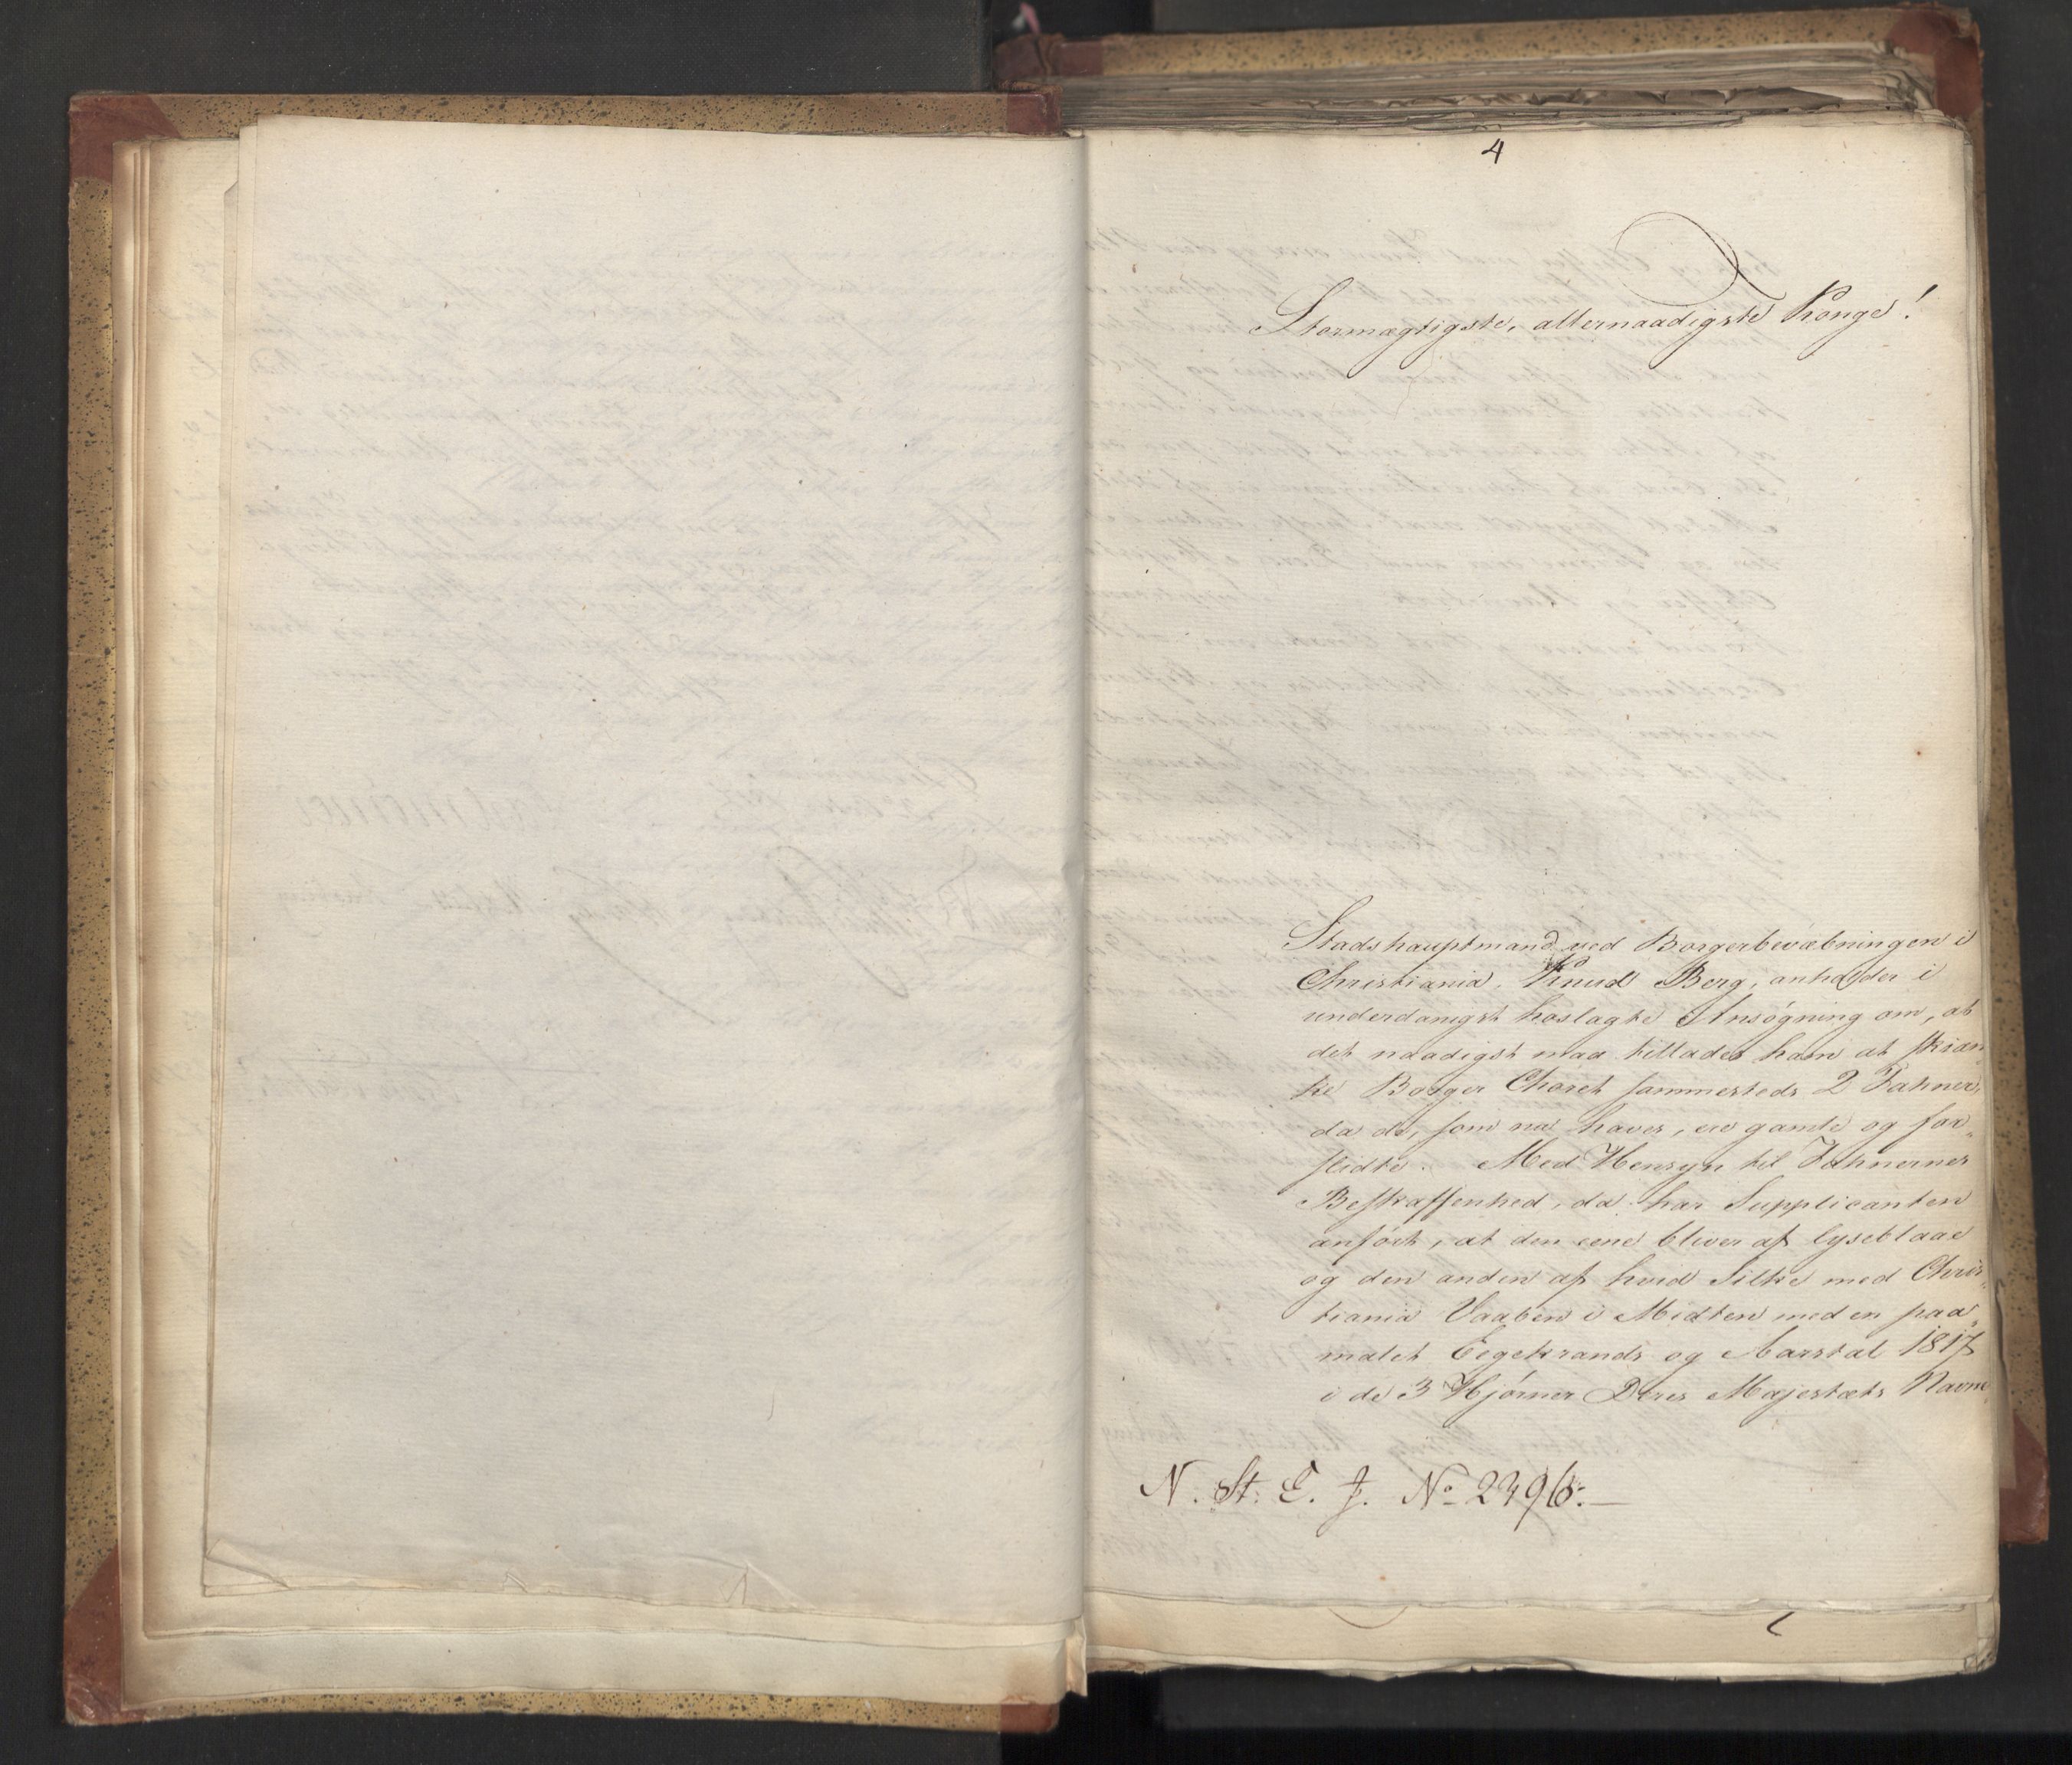 4
Stormægtigste, allernaadigste Konge!
Stadshauptmand ved Borgerbevæbningen i
Christiania, Knud Berg, anholder i
underdanigst hoslagte Ansøgning om, at
det naadigst maa tillades ham at skian-
ke Borger Choret sammesteds 2 Fahner,
da de, som nu haves, ere gamle og for-
slidte. Med Hensyn til Fahnernes
Beskaffenhed, da har Supplicanten
anført, at den eene bliver af lyseblaae
og den anden af hvid Silke med Chris-
tiania Vaaben i Midten med en paa-
malet Eegekrands og Aarstal 1817
i de 3 Hjørner Deres Majestæts Navne
N. St. E. J. No 2396.